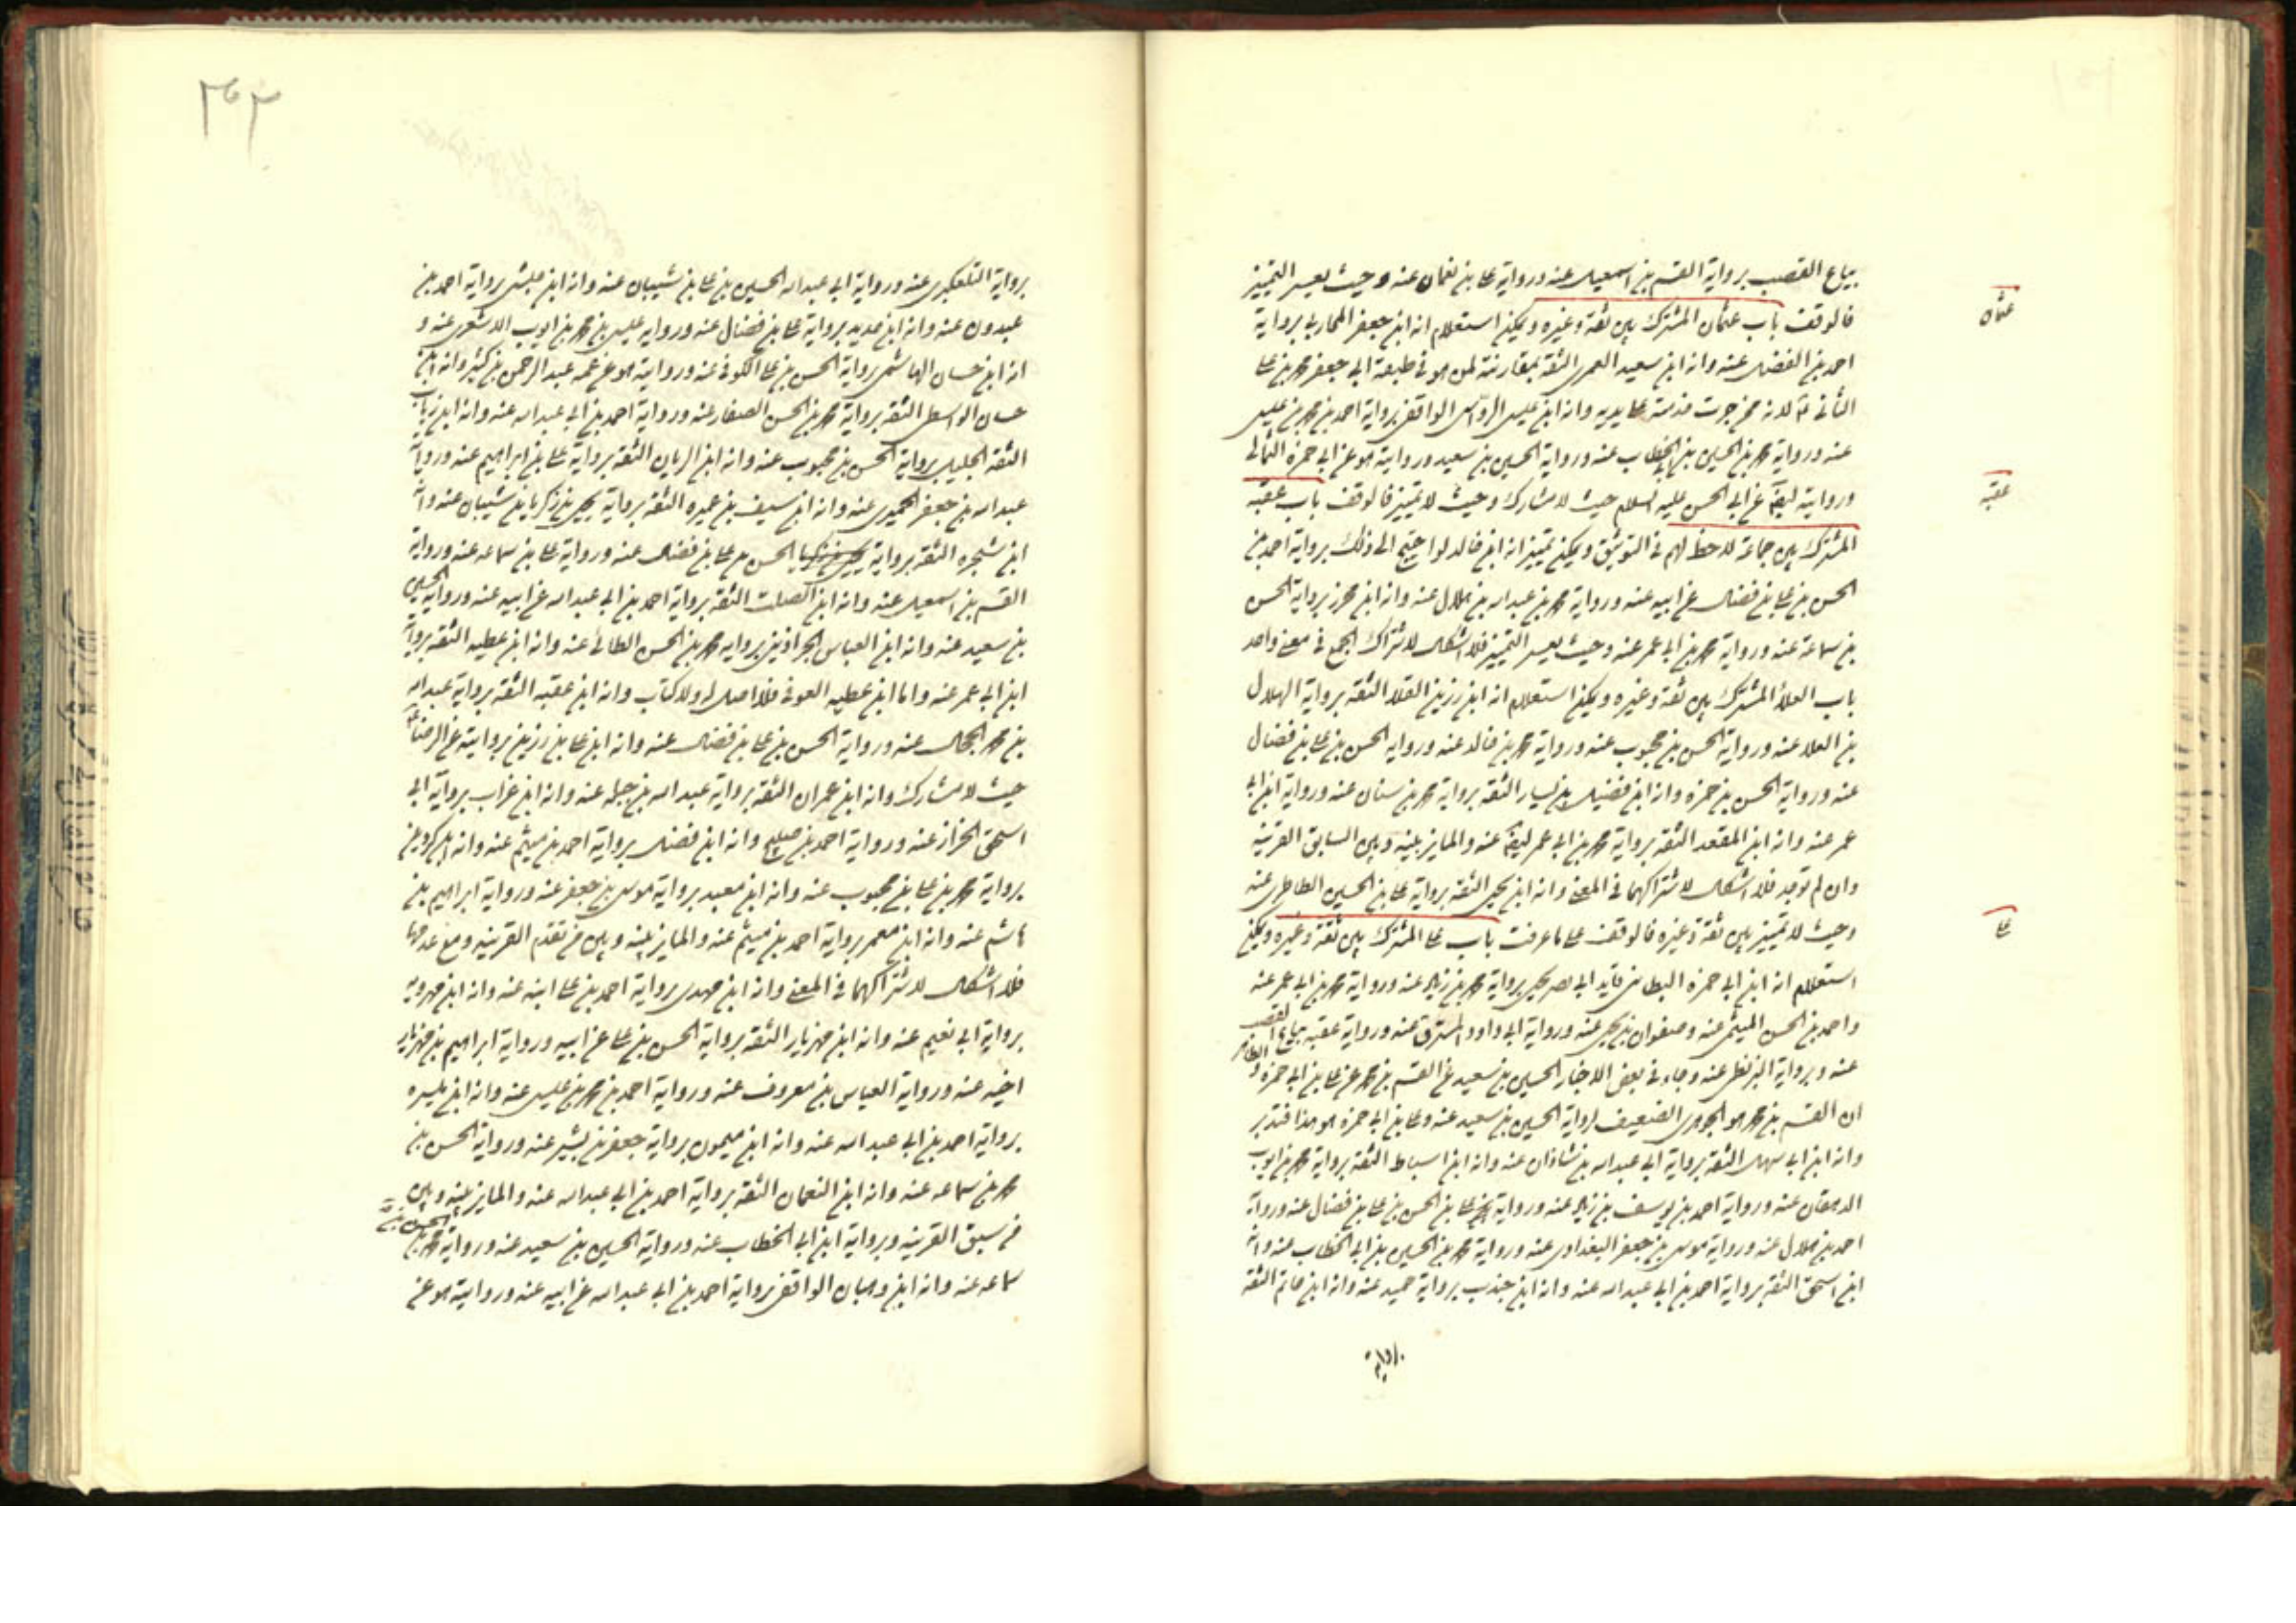 بياع القصب برواية القسم بن اسمعيل عنه ورواية على بن نعمان عنه وحيث يعسر التميز
عثمان
فالوقف باب عثمان المشترك بين ثقة وغيره ويمكن استعلام انه ابن جعفر المحاربى برواية
احمد بن الفضل عنه وانه ابن سعيد العمرى الثقة بمقارنته لمن هو فى طبقة ابى جعفر محمد بن على
الثانى لانه ممن جرت خدمته على يديه وانه ابن عيسى الرواسى الواقفى برواية احمد بن محمد بن عيسى
عنه ورواية محمد بن الحسين بن ابى الخطاب عنه ورواية الحسين بن سعيد وروايته هو عن ابى حمزة الثمالى
عقبه
وروايته ايضا عن ابى الحسن عليه السلام حيث لا مشارك وحيث لا تميز فالوقف باب عقبه
المشترك بين جماعة لاحظ لهم فى التوثيق ويمكن تميز انه ابن خالد لو احتيج الى ذلك برواية احمد بن
الحسن بن على بن فضال عن ابيه عنه ورواية محمد بن عبد الله بن هلال عنه وانه ابن محرز برواية الحسن
بن سماعة عنه ورواية محمد بن ابى عمر عنه وحيث يعسر التميز فلا اشكال لاشتراك الجمع فى معنى واحد
باب العلاء المشترك بين ثقة وغيره ويمكن استعلام انه ابن رزين القلا الثقة برواية الهلال
بن العلا عنه ورواية الحسن بن محبوب عنه ورواية محمد بن خالد عنه ورواية الحسن بن على بن فضال
عنه ورواية الحسن بن حمزه وانه ابن فضيل بن يسار الثقة برواية محمد بن سنان عنه ورواية ابن ابى
عمر عنه وانه ابن المقعد الثقة برواية محمد بن ابى عمر ايضا عنه والمايز بينه وبين السابق القرينه
وان لم توجد فلا اشكال لاشتراكهما فى المعنى وانه ابن يحيى الثقة برواية على بن الحسين الطاطرى عنه
على
وحيث لا تميز بين ثقة وغيره فالوقف على ما عرفت باب على المشترك بين ثقة وغيره ويمكن
استعلام انه ابن ابى حمزه البطاينى قايد ابى بصر يحيى برواية محمد بن زياد عنه ورواية محمد بن ابى عمر عنه
واحمد بن الحسن الميثمى عنه وصفوان بن يحيى عنه ورواية ابى داود المسترق عنه ورواية عقبه بياع القصب
عنه وبرواية البزنطى عنه وجاء فى بعض الاخبار الحسين بن سعيد عن القسم بن محمد عن على بن ابى حمزه والظاهر
ان القسم بن محمد هو الجوهرى الضعيف لرواية الحسين بن سعيد عنه وعلى بن ابى حمزه هو هذا فتدبر
وانه ابن ابى سهل الثقة برواية ابى عبد الله بن شاذان عنه وانه ابن اسباط الثقة برواية محمد بن ايوب
الدهقان عنه ورواية احمد بن يوسف بن زياد عنه ورواية على بن الحسن بن على بن فضال عنه ورواية
احمد بن هلال عنه ورواية موسى بن جعفر البغدادى عنه ورواية محمد بن الحسين بن ابى الخطاب عنه وانه
ابن اسحق الثقة برواية احمد بن ابى عبد الله عنه وانه ابن جندب برواية حميد عنه وانه ابن حاتم الثقة
برواية
٣٦٢
برواية التلعكبرى عنه ورواية ابى عبد الله الحسين بن على بن شيبان عنه وانه ابن حبشى برواية احمد بن
عبدون عنه وانه ابن حديد برواية على بن فضال عنه ورواية على بن محمد بن ايوب الاشعرى عنه و
انه ابن حسان الهاشمى برواية الحسن بن على الكوفى عنه وروايته هو عن عمه عبد الرحمن بن كثير وانه ابن
حسان الواسطى الثقة برواية محمد بن الحسن الصفار عنه ورواية احمد بن ابى عبد الله عنه وانه ابن رئاب
الثقة الجليل برواية الحسن بن محبوب عنه وانه ابن الريان الثقة برواية على بن ابراهيم عنه ورواية
عبد الله بن جعفر الحميرى عنه وانه ابن سيف بن عميره الثقة برواية يحيى بن زكريا بن شيبان عنه وانه
ابن شجره الثقة برواية الحسن بن على بن فضال عنه ورواية على بن سماعه عنه ورواية
القسم بن اسمعيل عنه وانه ابن الصلت الثقة برواية احمد بن ابى عبد الله عن ابيه عنه ورواية الحسين
بن سعيد عنه وانه ابن العباس الجراذينى برواية محمد بن الحسن الطائى عنه وانه ابن عطيه الثقة برواية
ابن ابى عمر عنه واما ابن عطيه العوفى فلا اصل له ولا كتاب وانه ابن عقبه الثقة برواية عبد الله
بن محمد الحجال عنه ورواية الحسن بن على بن فضال عنه وانه ابن على بن رزين بروايته عن الرضا
حيث لا مشارك وانه ابن عمران الثقة برواية عبد الله بن جبله عنه وانه ابن غراب برواية ابى
اسحق الخزاز عنه ورواية احمد بن صبيح وانه ابن فضل برواية احمد بن ميثم عنه وانه ابن كردين
برواية محمد بن على بن محبوب عنه وانه ابن معبد برواية موسى بن جعفر عنه ورواية ابراهيم بن
هاشم عنه وانه ابن معمر برواية احمد بن ميثم عنه والمايز بينه وبين من تقدم القرينه ومع عدمها
فلا اشكال لاشتراكهما فى المعنى وانه ابن مهدى برواية احمد بن على ابنه عنه وانه ابن مهرويه
برواية ابى نعيم عنه وانه ابن مهزيار الثقة برواية الحسن بن على عن ابيه ورواية ابراهيم بن مهزيار
اخيه عنه ورواية العباس بن معروف عنه ورواية احمد بن محمد بن عيسى عنه وانه ابن ميسره
برواية احمد بن ابى عبد الله عنه وانه ابن ميمون برواية جعفر بن بشير عنه ورواية الحسن بن
محمد بن سماعه عنه وانه ابن النعمان الثقة برواية احمد بن ابى عبد الله عنه والمايز بينه وبين
من سبق القرينه وبرواية ابن ابى الخطاب عنه ورواية الحسين بن سعيد عنه ورواية الحسن بن محمد بن
سماعه عنه وانه ابن وهبان الواقفى برواية احمد بن ابى عبد الله عن ابيه عنه وروايته هو عن